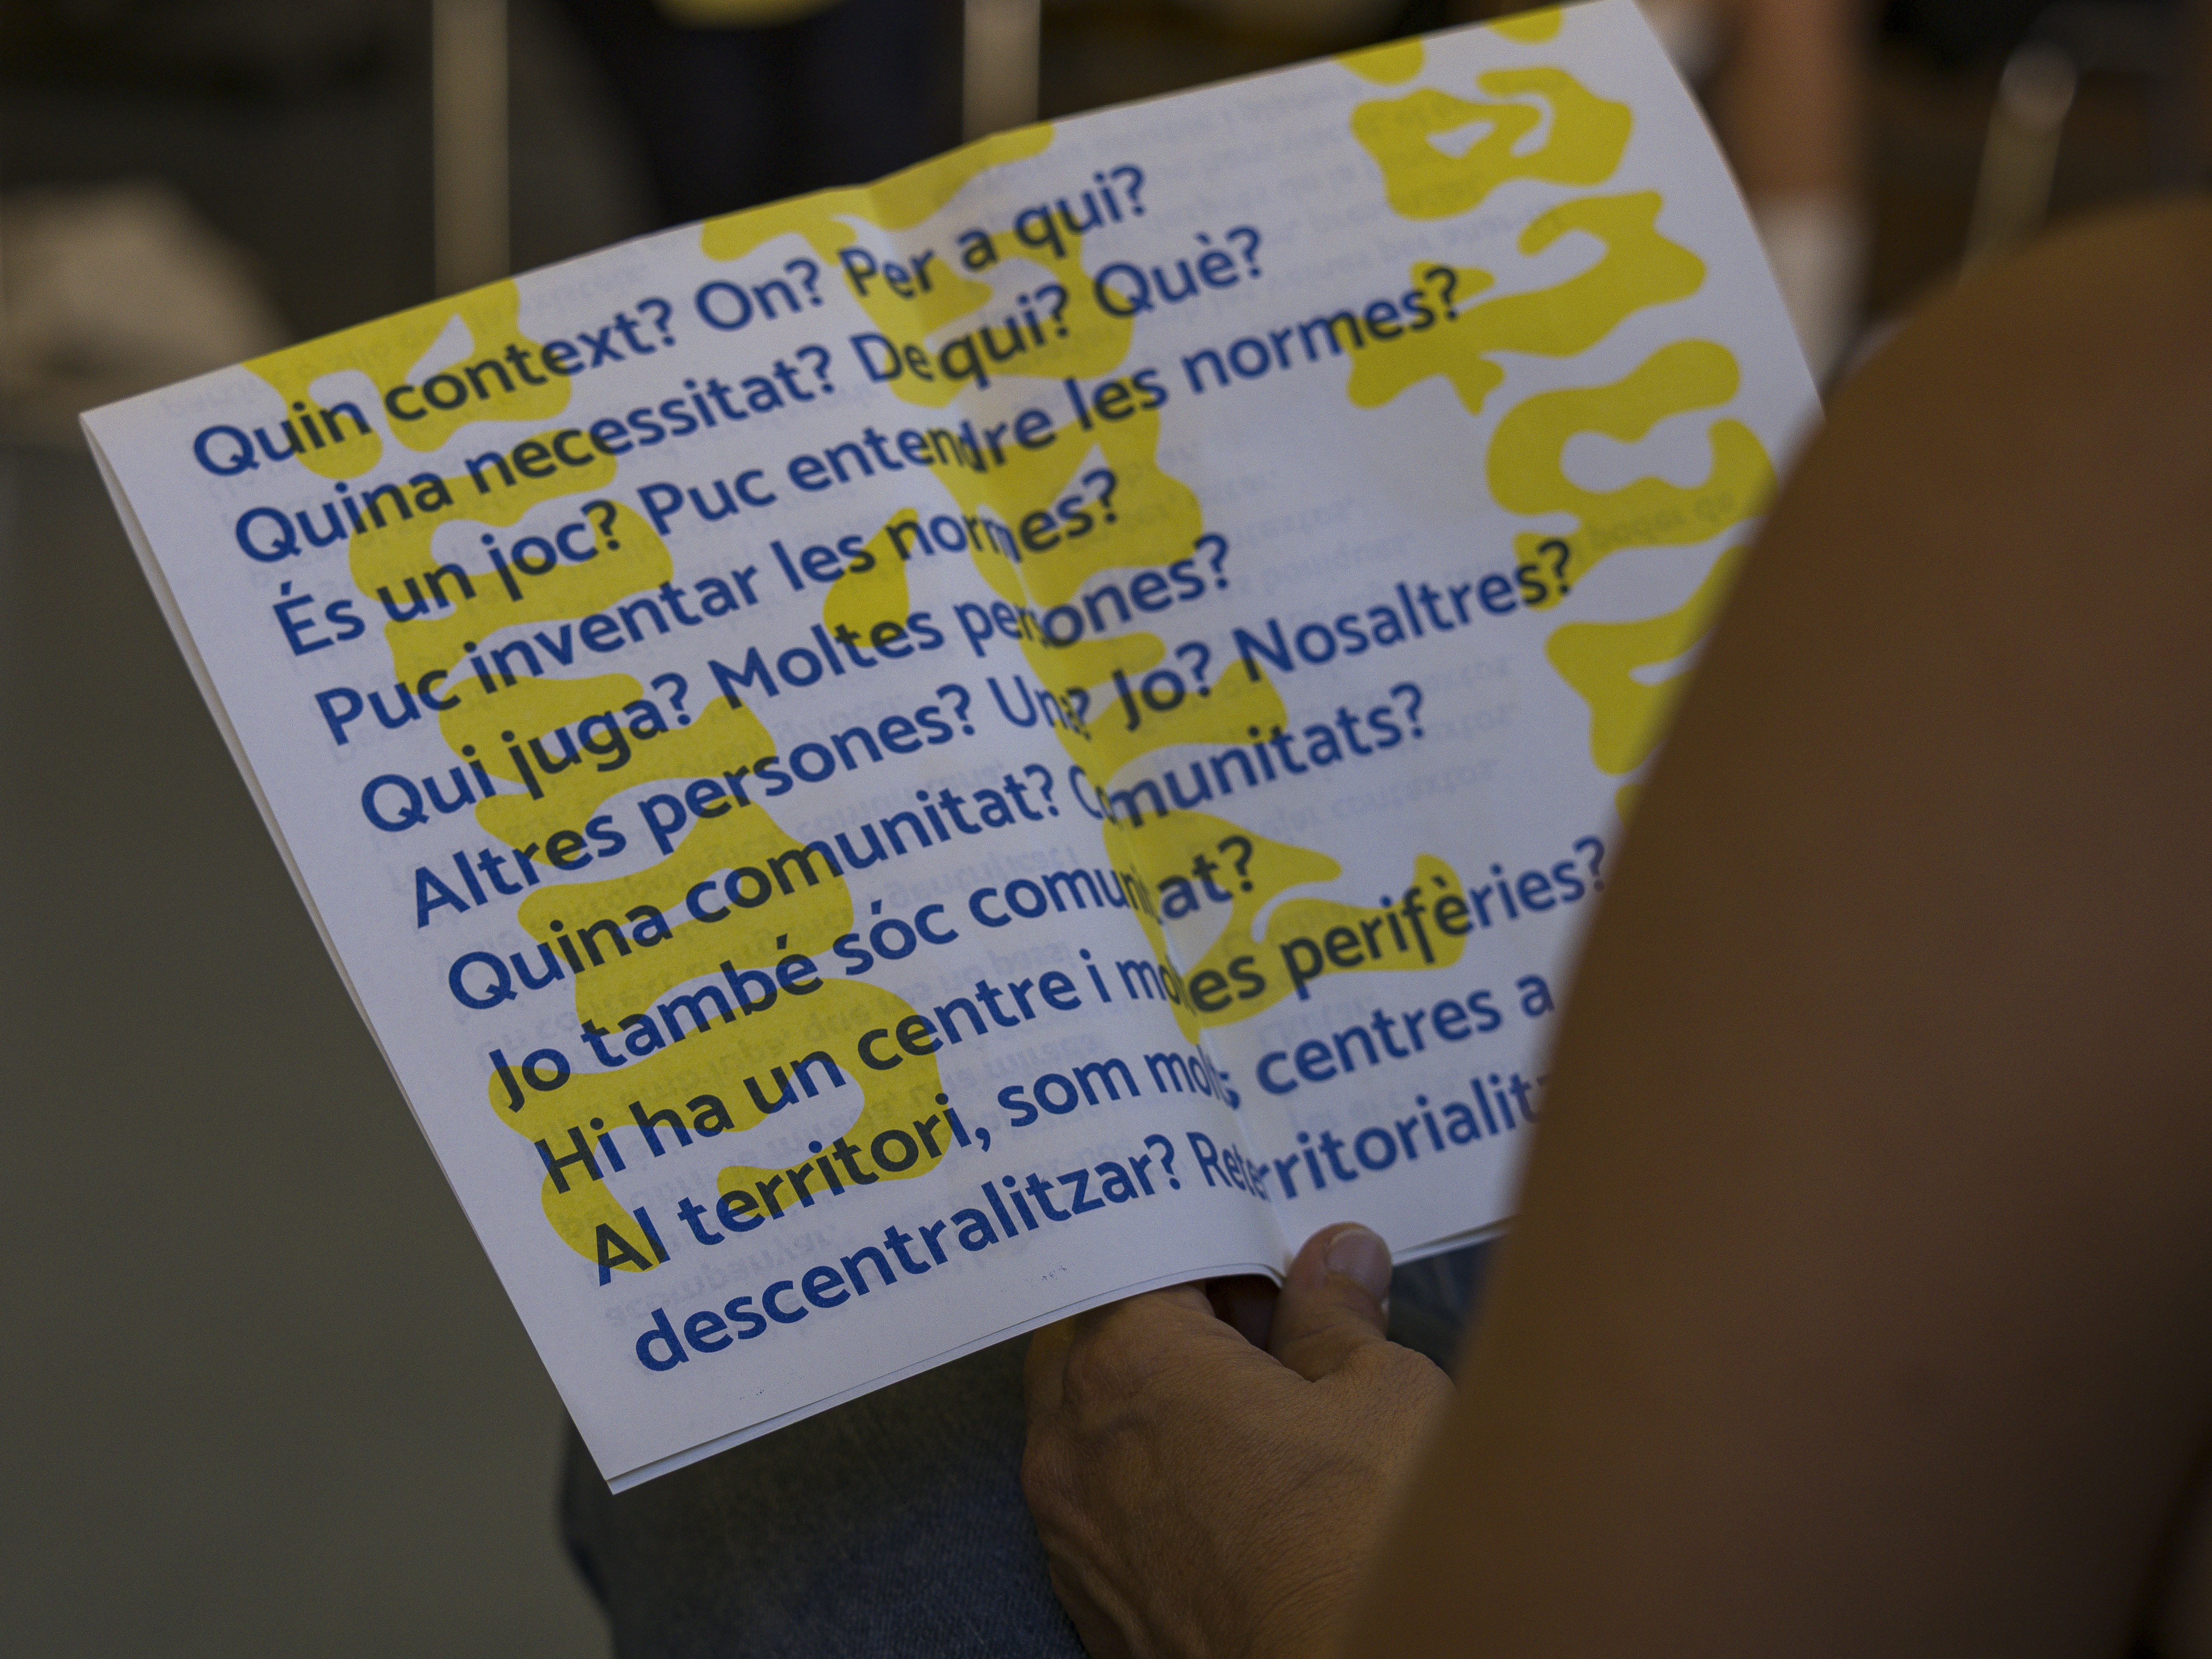 Quin context? On? Per a qui?
Quina necessitat? De qui? Què?
És un joc? Puc entendre les normes?
Puc inventar les normes?
Qui juga? Moltes persones?
Altres persones? Una? Jo? Nosaltres?
Quina comunitat? Comunitats?
Jo també sóc comunitat?
Hi ha un centre i moltes perifèries?
Al territori, som molts centres a
descentralitzar? Reterritorialitz